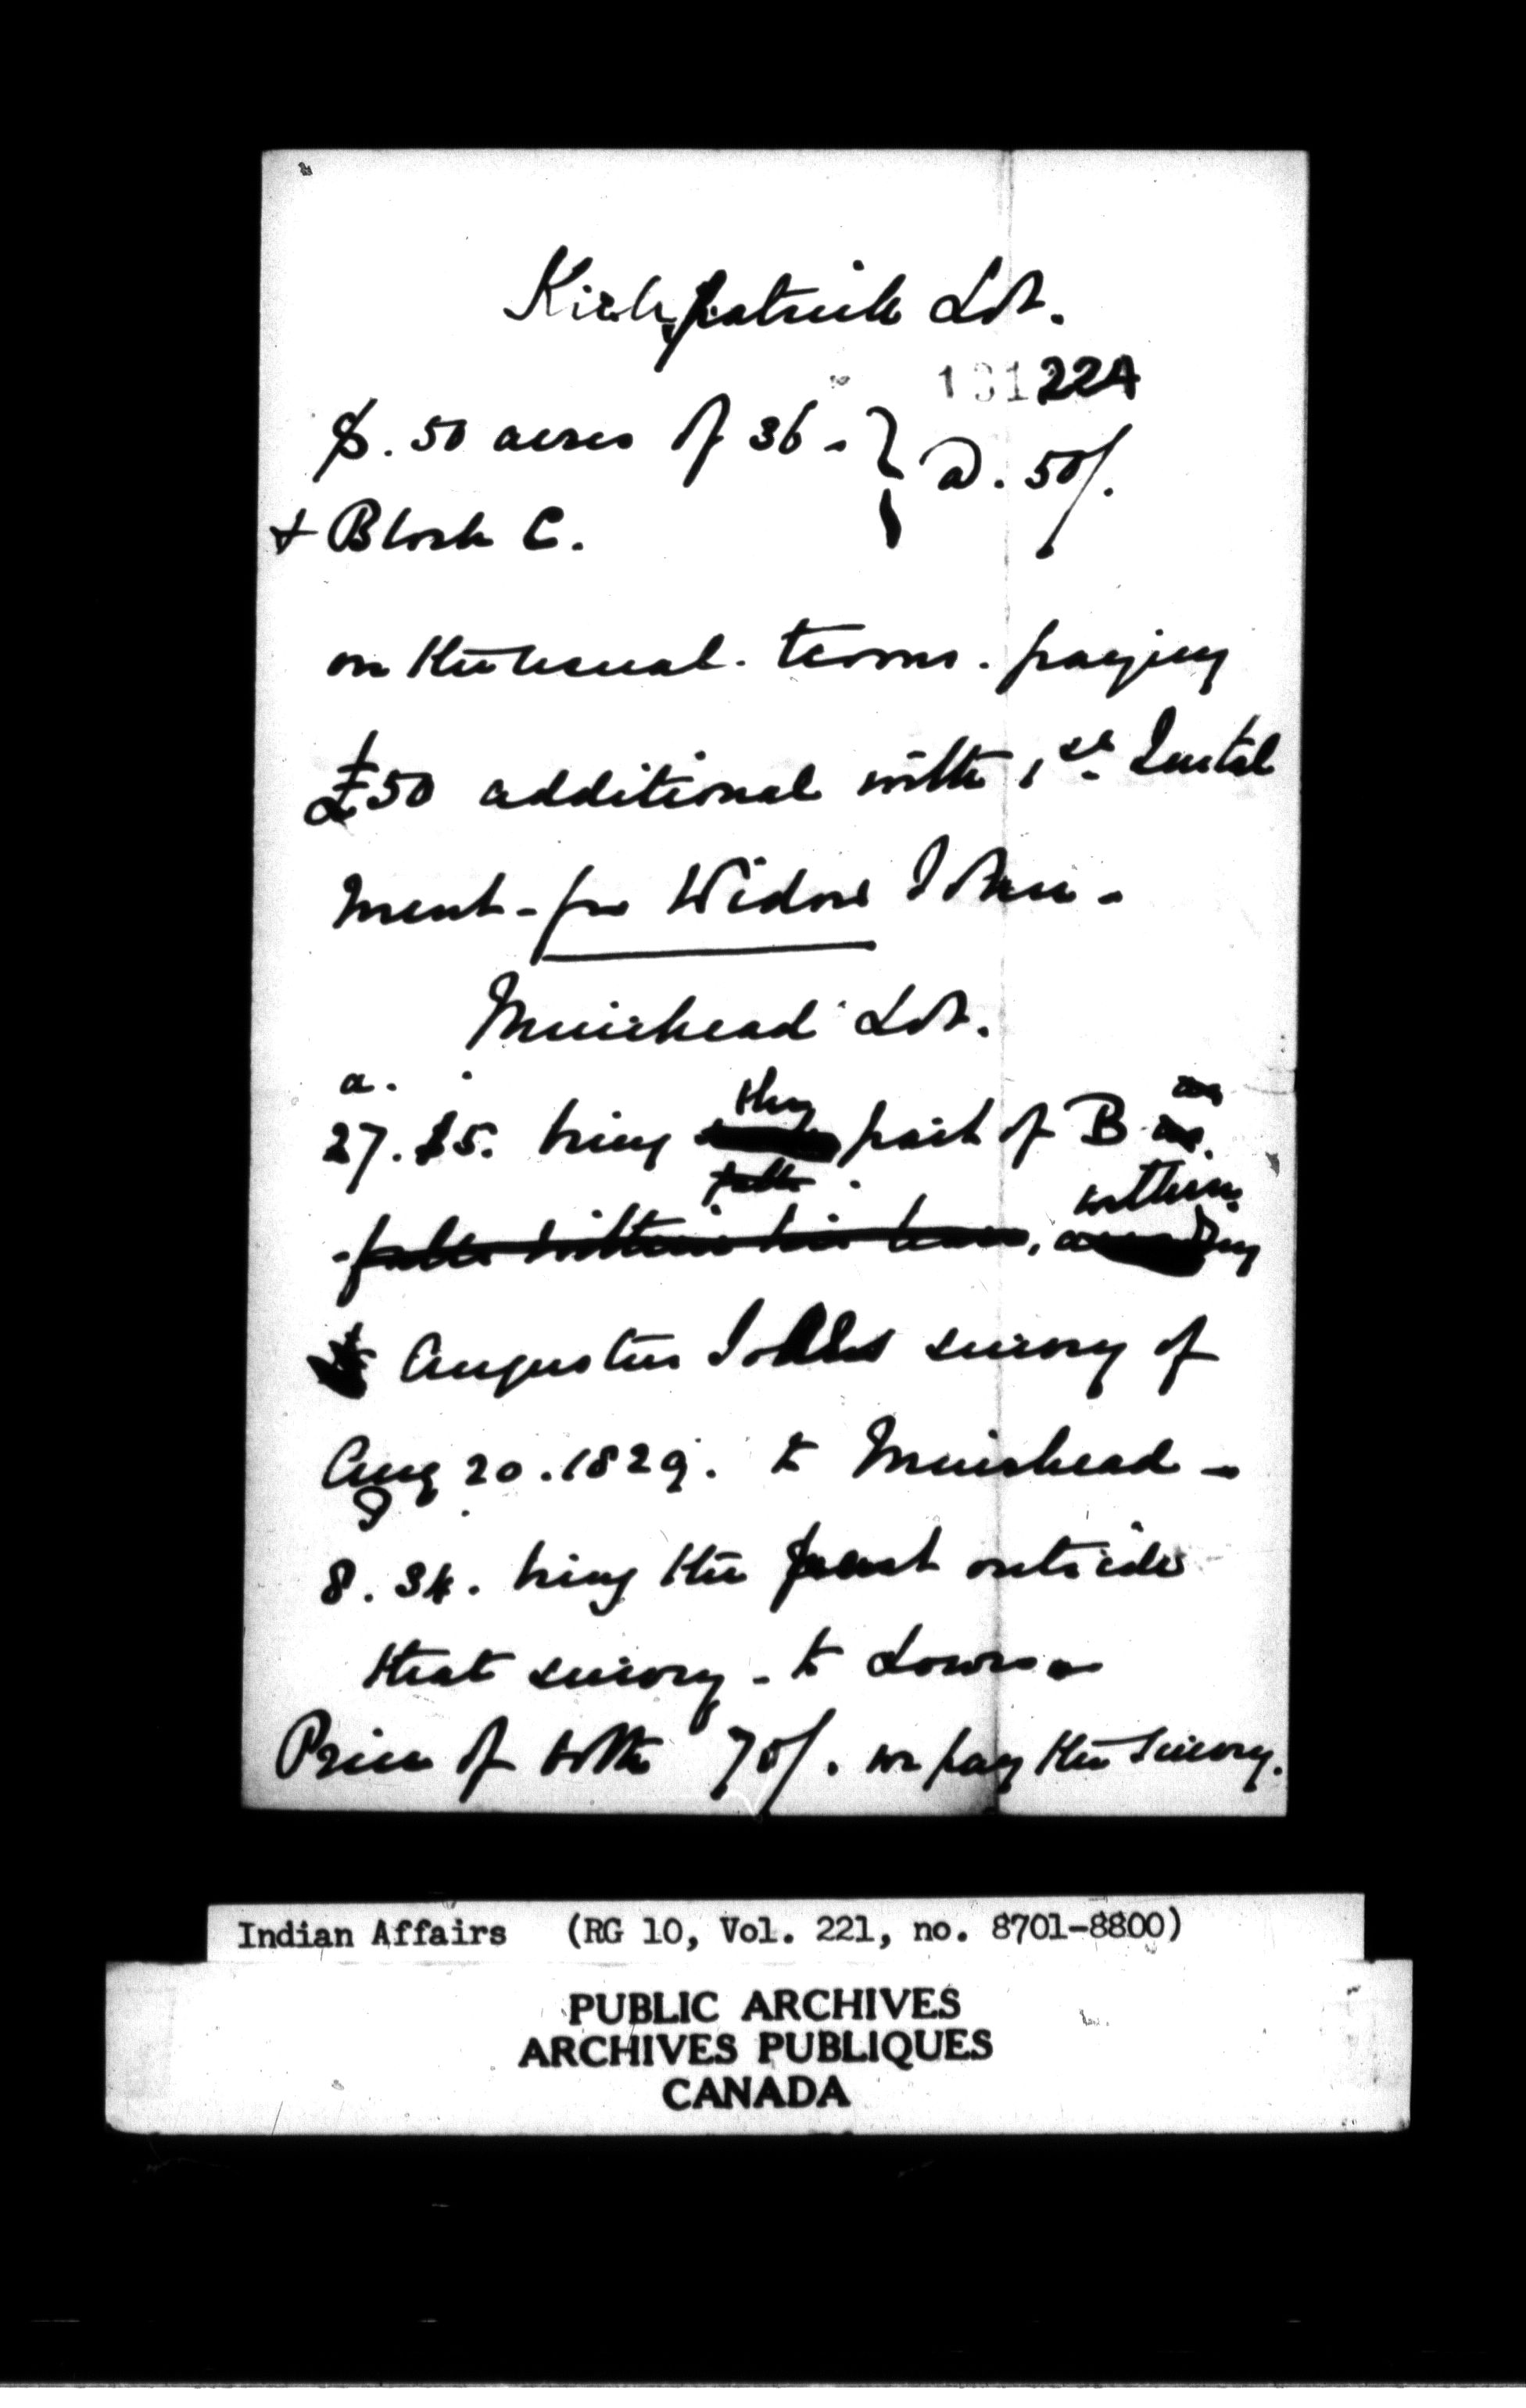 Kirkpatrick Lot.
13122A
S. 50 acres of 36 - } @. 50/.
+ Block C.
on the usual. terms. paying
£50 additional with 1st Instal
ment - for Widow John -
Muirhead Lot.
a.
they as
27. 25. being part of B
falls
within
falls within his
Augustus Jones survey of
Aug 20. 1829. to Muirhead -
8. 34. being the part outside
that survey - to Lawson
Price of both 70/. we pay the survey.
Indian Affairs (RG 10, Vol. 221, no. 8701-8800)
PUBLIC ARCHIVES
ARCHIVES PUBLIQUES
CANADA